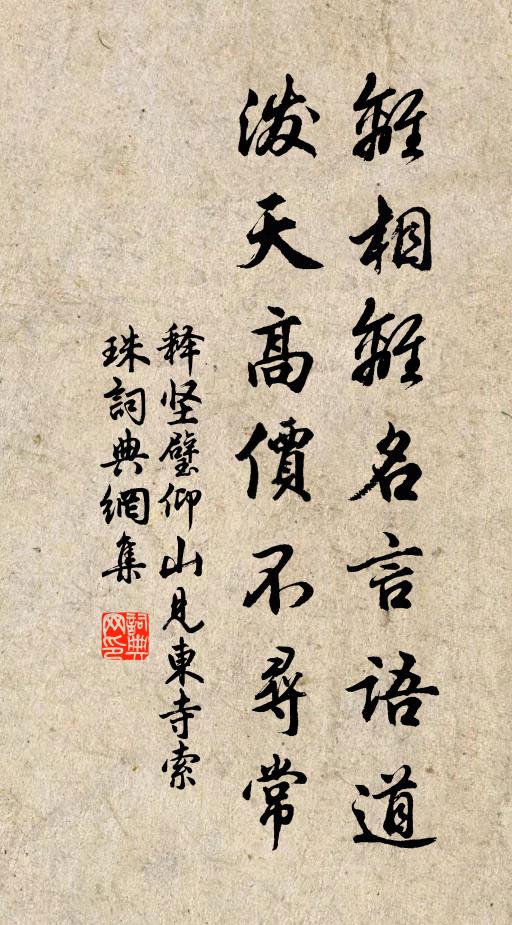 離相離名言語道
潑天高價不尋常
释坚璧仰山见東寺索
珠詞典網集
詞典网印